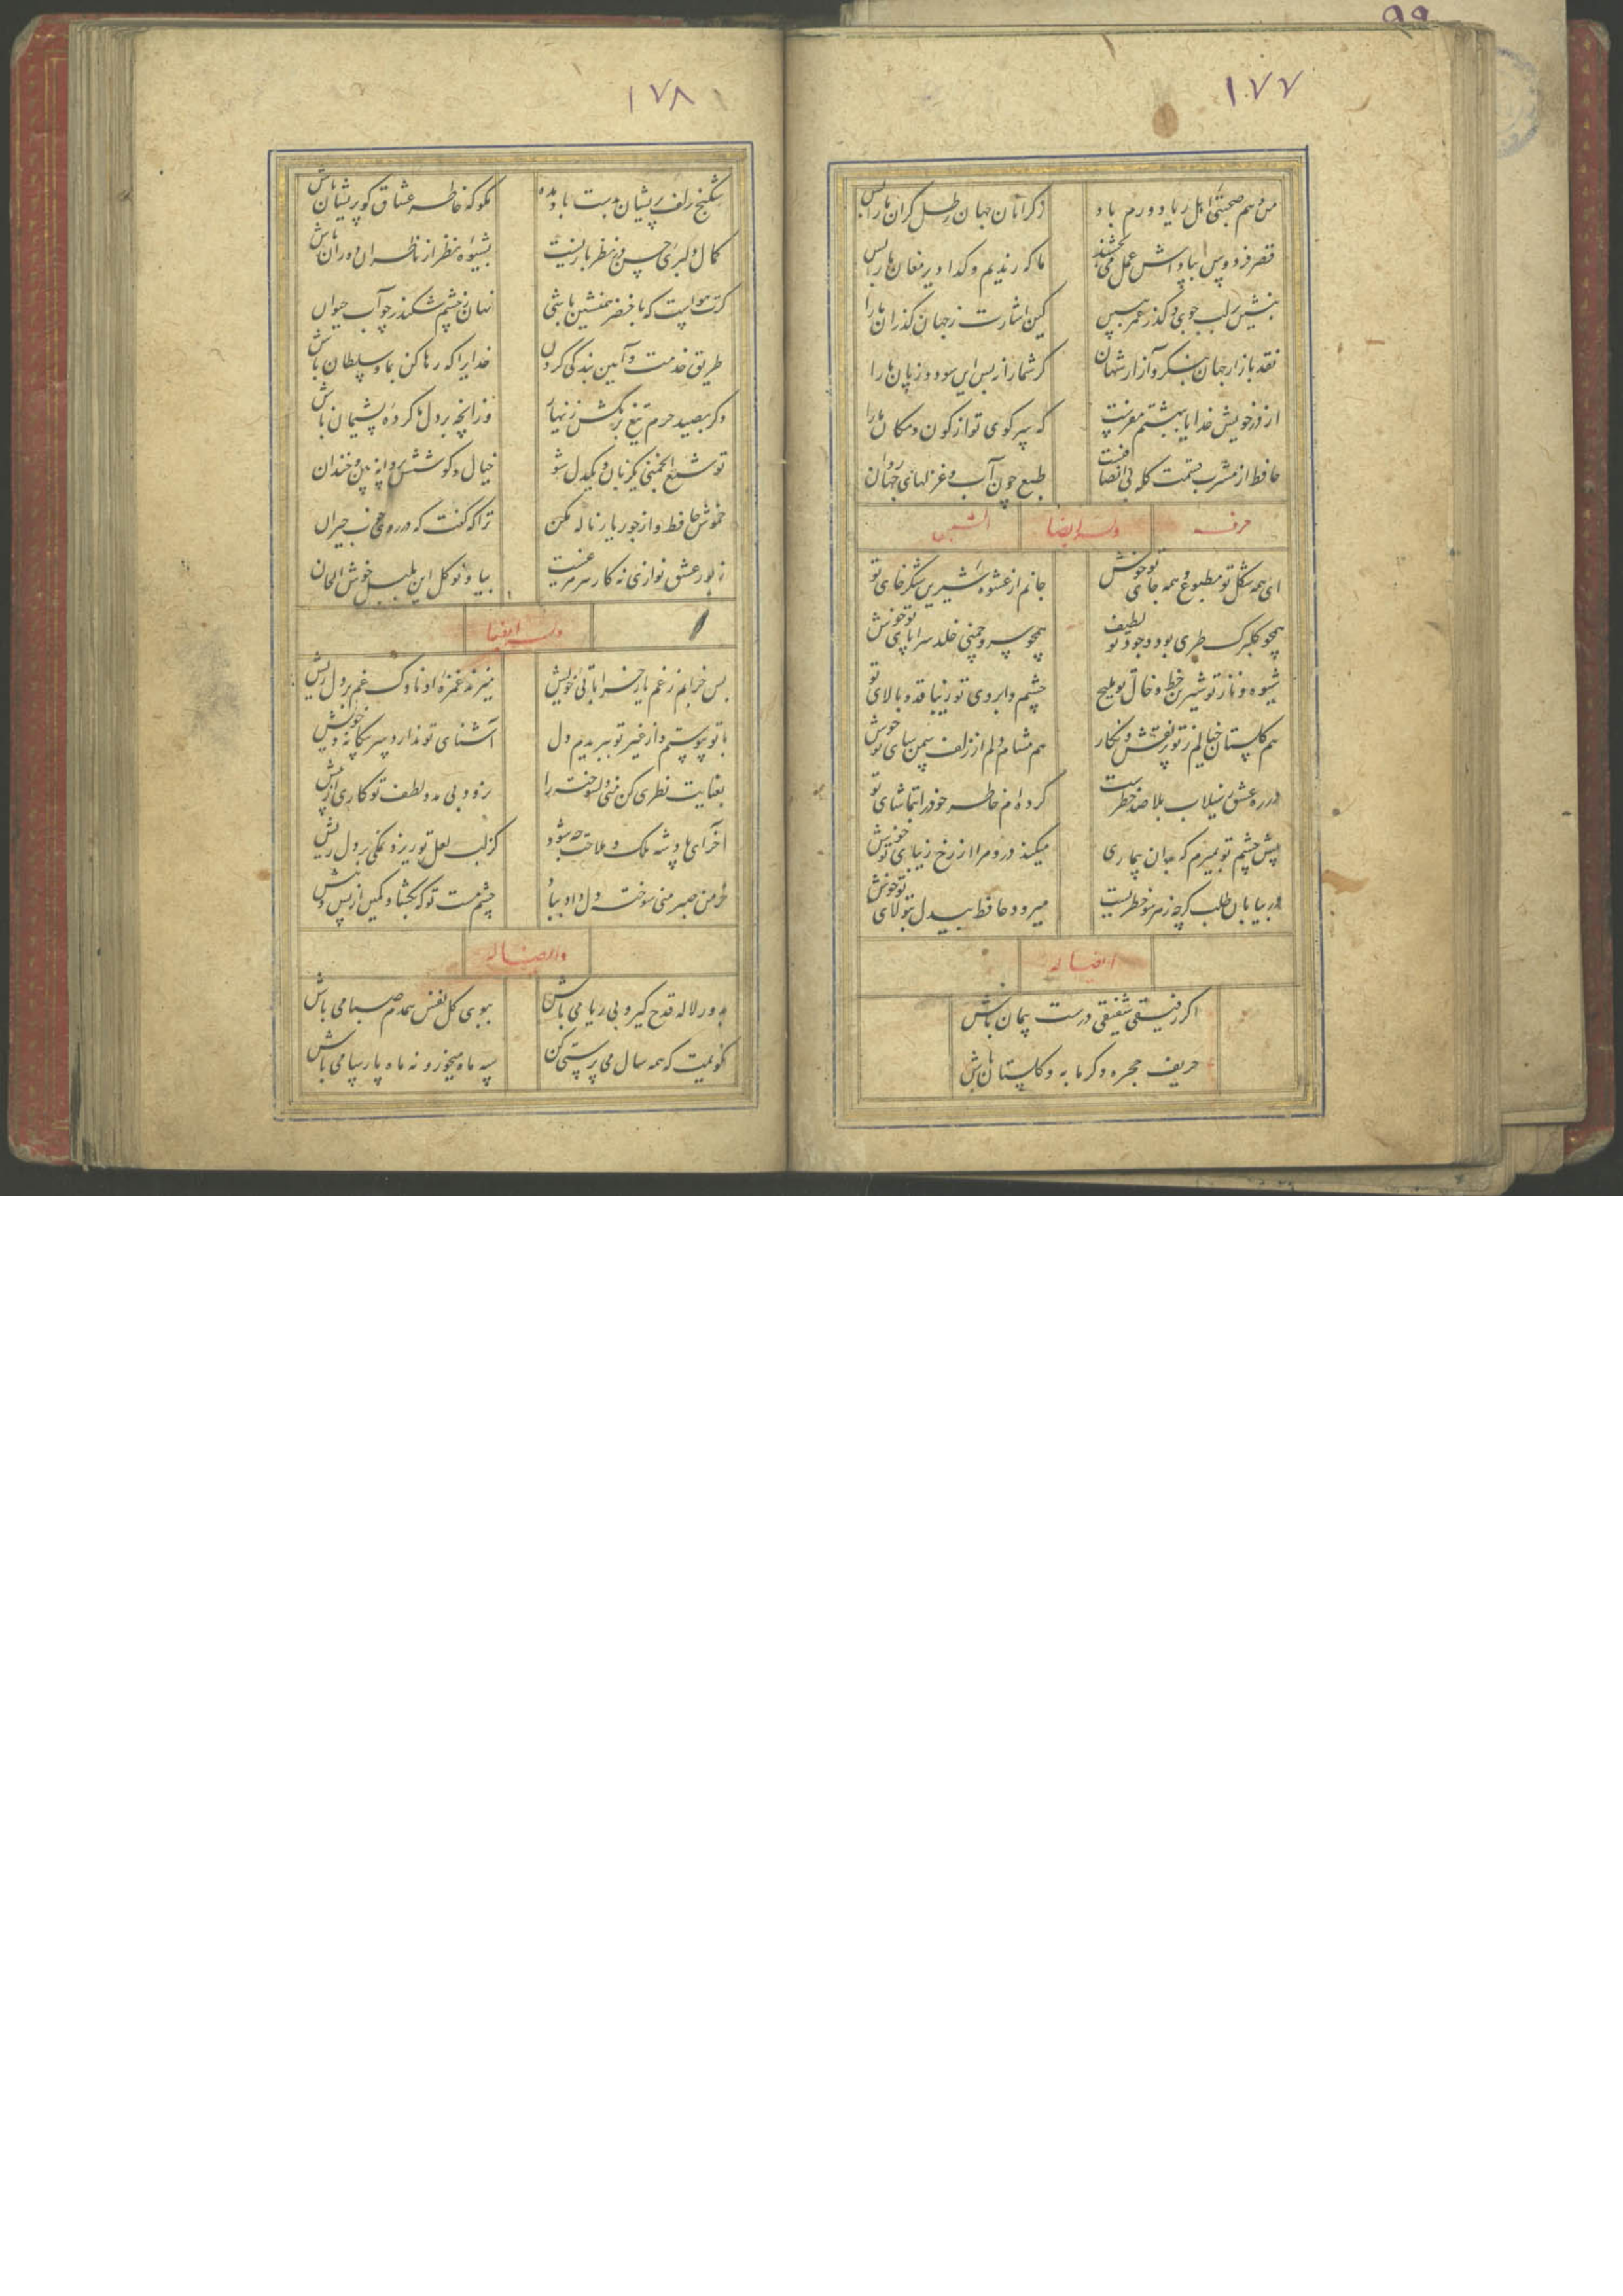 ۹۹
۱۷۷
من و هم صحبتی اهل ریا دورم باد
از گرانان جهان رطل گران ما را بس
قصر فردوس بپاداش عمل می بخشند
ما که رندیم و گدا دیر مغان ما را بس
بنشین بر لب جوی و گذر عمر ببین
کین اشارت ز جهان گذران ما را
نقد بازار جهان بنگر و آزار جهان
گر شما را نه بس این سود و زیان ما را
از در خویش خدایا ببهشتم مفرست
که سر کوی تو از کون و مکان ما را
حافظ از مشرب قسمت گله بی انصافیست
طبع چون آب و غزلهای روان
حرف
وله ایضا
الشین
ای همه شکل تو مطبوع و همه جای تو خوش
جانم از عشوه شیرین شکرخای تو
همچو گلبرگ طری بود وجود تو لطیف
همچو سرو چمنی خلد سراپای تو خوش
شیوه و ناز تو شیرین خط و خال تو ملیح
چشم و ابروی تو زیبا قد و بالای تو
هم گلستان خیالم ز تو پر نقش و نگار
هم مشام دلم از زلف سمن سای تو خوش
در ره عشق ز سیلاب بلا صد خطر است
کرده ام خاطر خود را بتماشای تو
پیش چشم تو بمیرم که بدان بیماری
میکند درد مرا از رخ زیبای تو خوش
در بیابان طلب گرچه ز هر سو خطریست
میرود حافظ بیدل بتولای تو خوش
ایضا له
اگر رفیق شفیقی درست پیمان باش
حریف حجره و گرمابه و گلستان باش
۱۷۸
شکنج زلف پریشان بدست باد مده
مگو که خاطر عشاق گو پریشان باش
کمال دلبری و حسن در نظر بازیست
بشیوه نظر از ناظران دوران باش
گرت هواست که با خضر همنشین باشی
نهان ز چشم سکندر چو آب حیوان
طریق خدمت و آیین بندگی کردن
خدایرا که رها کن بما و سلطان باش
دگر بصید حرم تیغ بر مکش زنهار
وزانچه بر دل ما کرده پشیمان باش
تو شمع انجمنی یکزبان و یکدل شو
خیال و کوشش پروانه بین و خندان
خموش حافظ و از جور یار ناله مکن
ترا که گفت که در روی خوب حیران
بیا و نوگل این بلبل خوش الحان
وله ایضا
با تو پیوستم و از غیر تو ببریدم دل
آشنای تو ندارد سر بیگانه و خویش
بعنایت نظری کن که من دلسوخته را
نرود بی مدد لطف تو کاری از پیش
آخر ای پادشه ملک ملاحت چه شود
گر لب لعل تو ریزد نمکی بر دل ریش
خرمن صبر من سوخته دل داد بباد
چشم مست تو که بگشاد کمین از پس و پیش
و ایضا له
بدور لاله قدح گیر و بی ریا می باش
ببوی گل نفس همدم صبا می باش
نگویمت که همه سال می پرستی کن
سه ماه میخور و نه ماه پارسا می باش